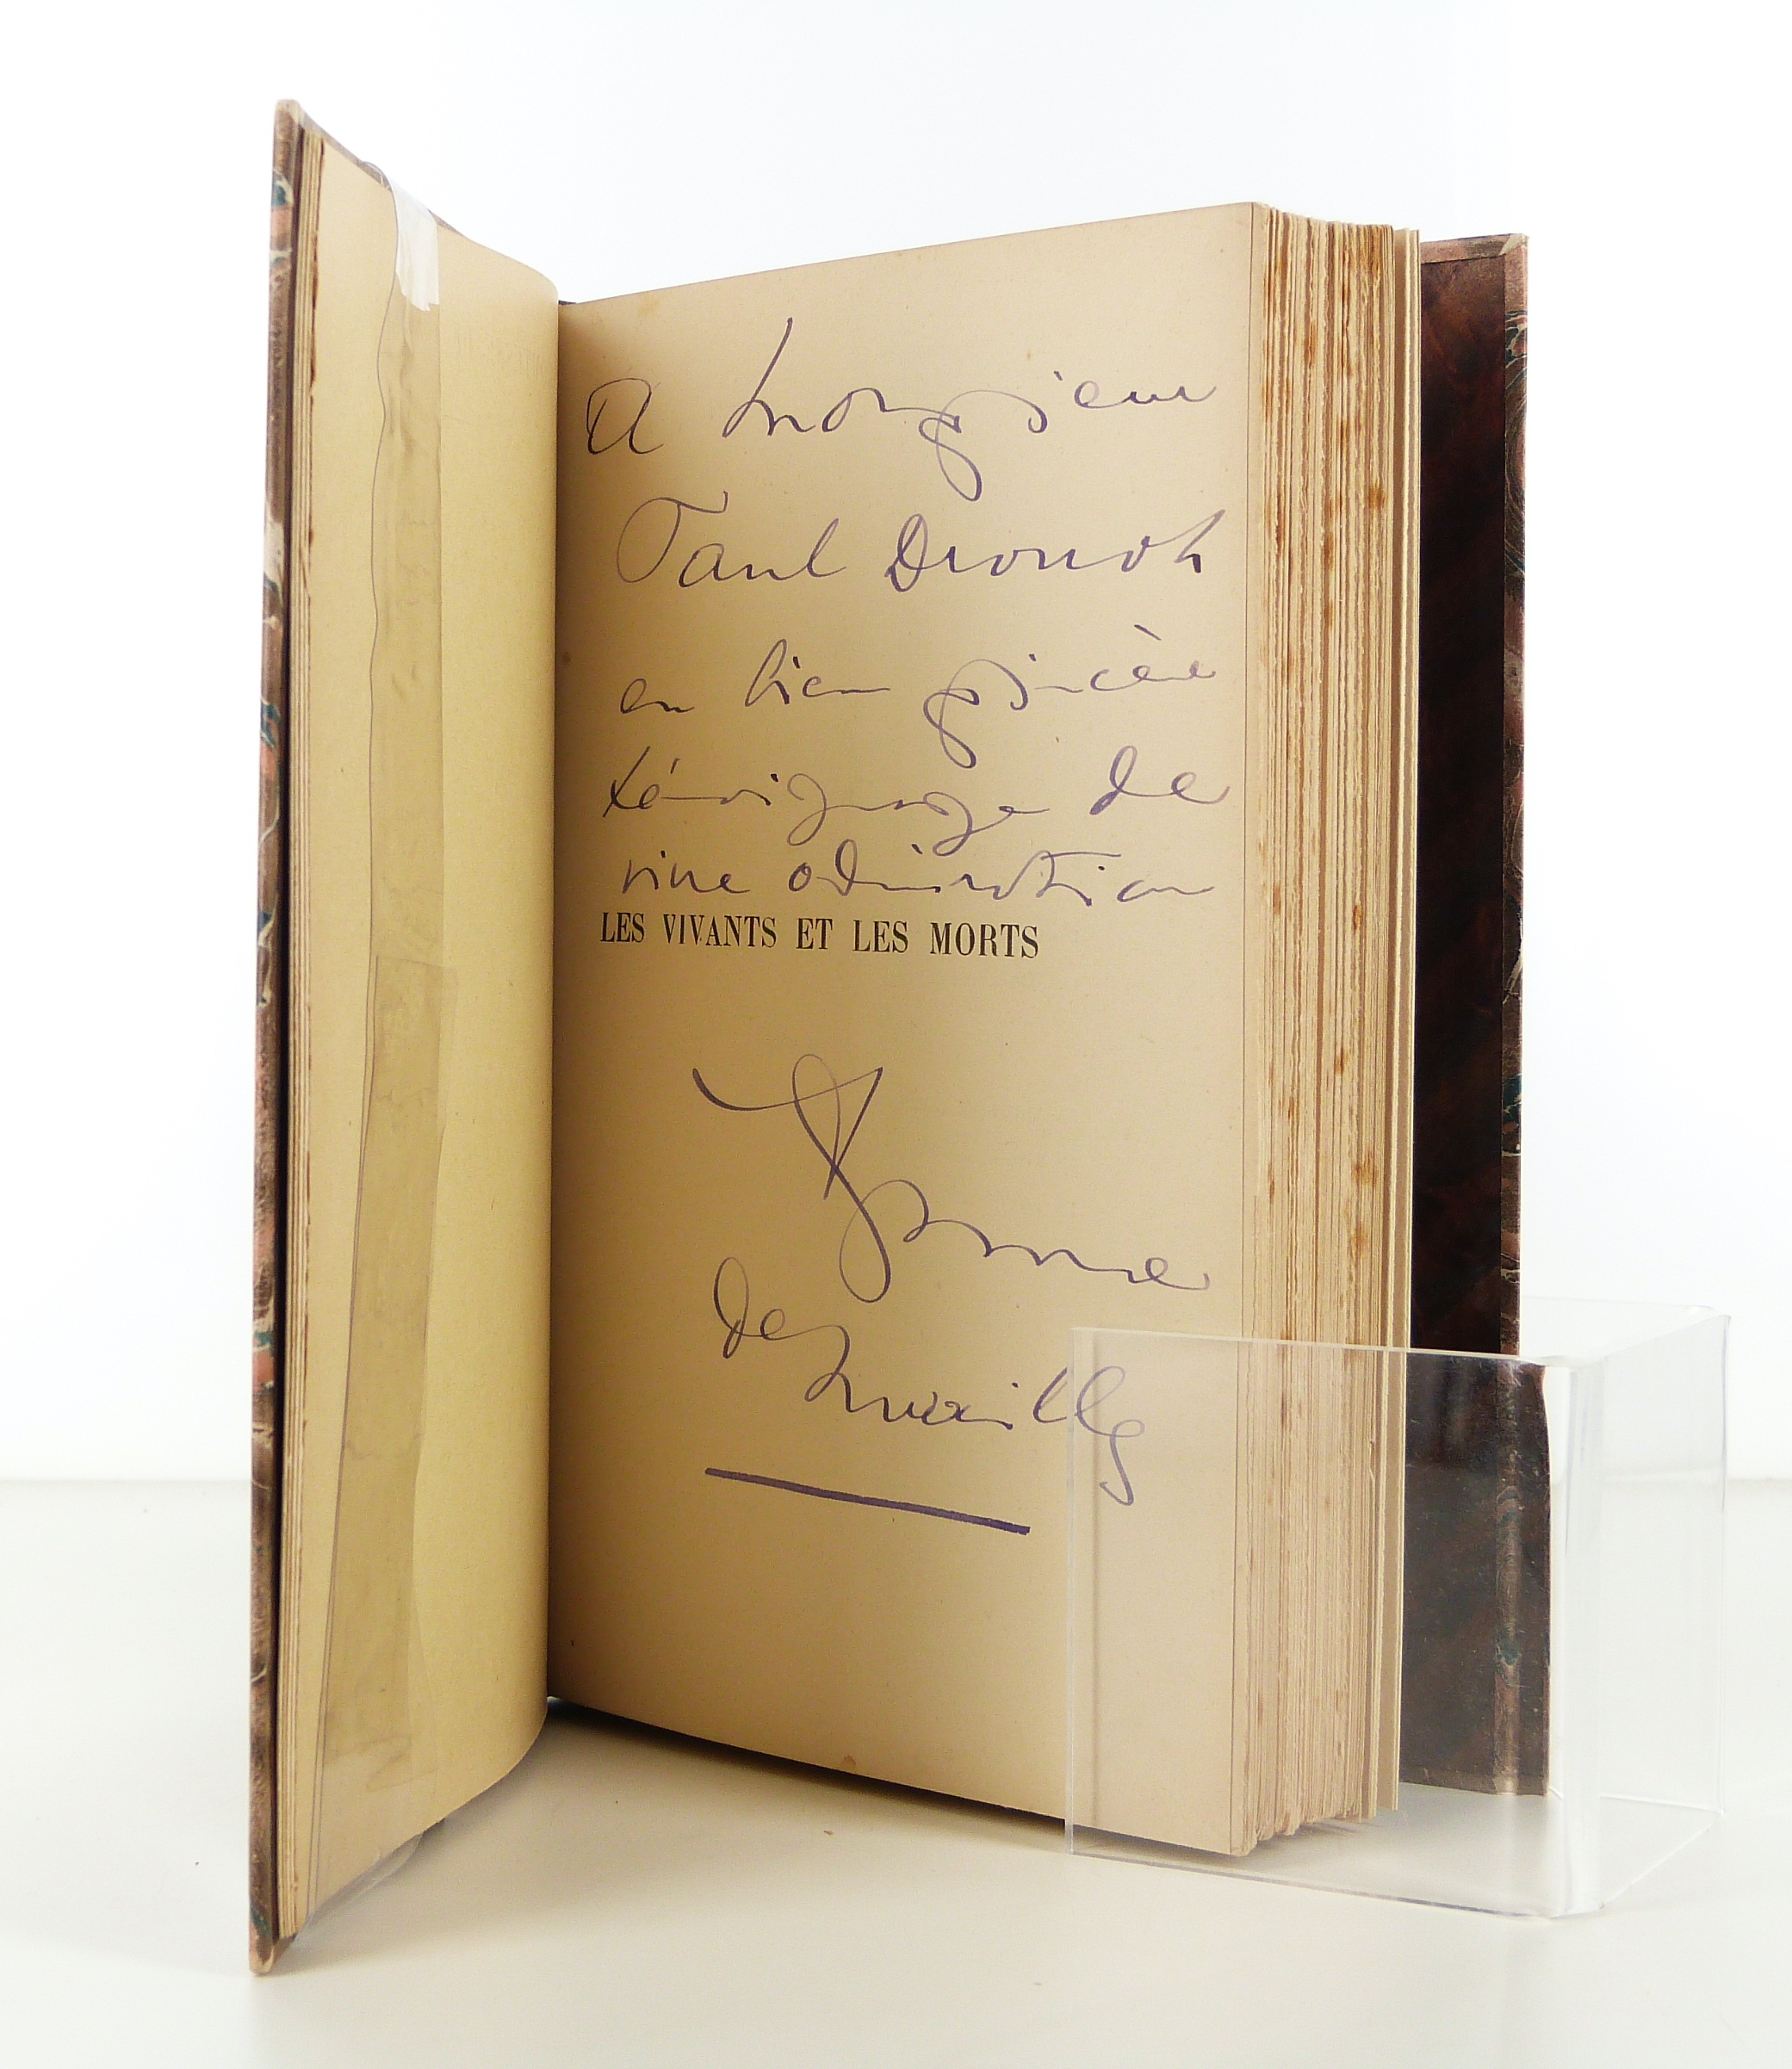 A Monsieur
Paul Drouot
en bien sincère
témoignage de
vive admiration
LES VIVANTS ET LES MORTS
Comtesse
de Noailles